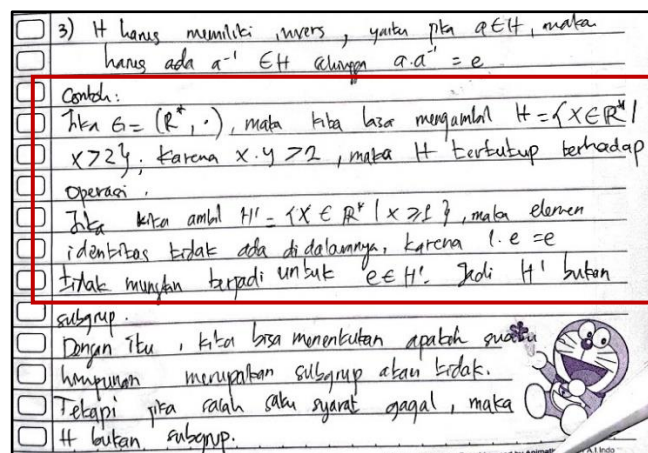 3) H harus memiliki invers, yaitu jika a ∈ H, maka
harus ada a⁻¹ ∈ H sehingga a.a⁻¹ = e
Contoh:
Jika G = (R*, ·), maka kita bisa mengambil H = {x ∈ R* |
x > 2}. Karena x.y > 2, maka H tertutup terhadap
operasi.
Jika kita ambil H' = {x ∈ R* | x ≥ 1}, maka elemen
identitas tidak ada didalamnya, karena 1.e = e
tidak mungkin terjadi untuk e ∈ H'. Jadi H' bukan
subgrup.
Dengan itu, kita bisa menentukan apakah suatu
himpunan merupakan subgrup atau tidak.
Tetapi jika salah satu syarat gagal, maka
H bukan subgrup.